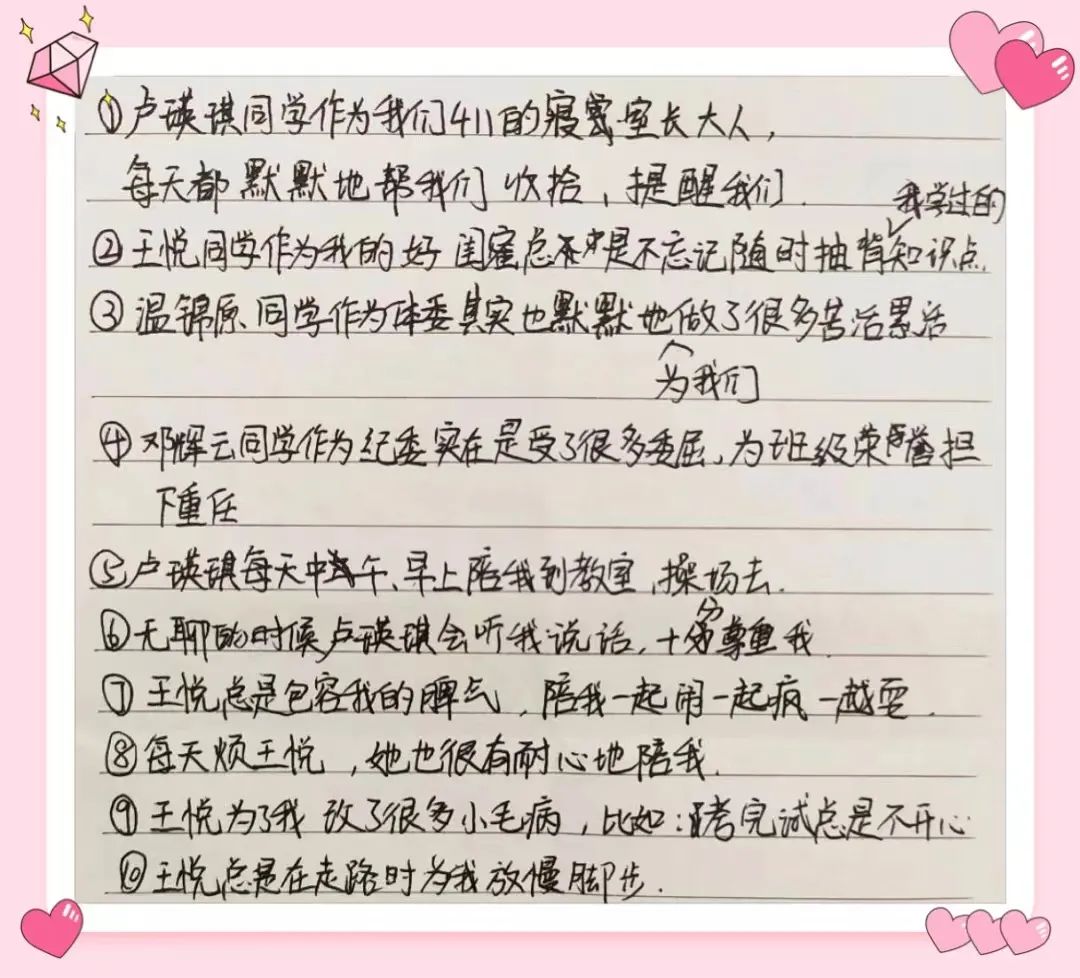 ①卢瑛琪同学作为我们411的寝室室长大人，
每天都默默地帮我们收拾，提醒我们.
我学过的
②王悦同学作为我的好闺蜜总是不忘记随时抽背知识点.
③温锦原同学作为体委其实也默默地做了很多苦活累活
为我们
④邓辉云同学作为纪委实在是受了很多委屈，为班级荣誉担
下重任
⑤卢瑛琪每天中午、早上陪我到教室，操场去.
⑥无聊的时候卢瑛琪会听我说话，十分尊重我.
⑦王悦总是包容我的脾气，陪我一起闹一起疯一越耍.
⑧每天烦王悦，她也很有耐心地陪我.
⑨王悦为了我改了很多小毛病，比如：考完试总是不开心
⑩王悦总是在走路时为我放慢脚步.